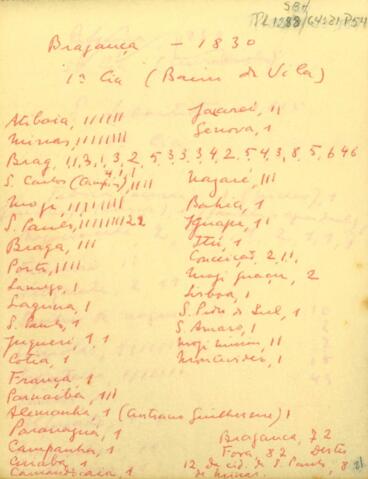 SBH
Bragança - 1830
1ª Cia (Bairro da Vila)
Atibaia, 1111111
Jacareí, 11
Minas, 1111111
Genova, 1
Brag, 1, 1, 3, 1, 3, 2, 5, 3, 3, 3, 4, 2, 5, 4, 3, 8, 5, 6 4 6
S. Carlos (Campinas), 1111
Nazaré, 111
Mogi
Bahia, 1
S. Paulo
Iguape, 1
Braga, 111
Itú, 1
Porto, 1111
Conceição, 2, 11
Lamego, 1
Mogi Guaçu, 2
Laguna, 1
Lisboa, 1
S. Paulo, 1
S. Pedro do Sul, 1
Juqueri, 11
S. Amaro, 1
Cotia, 1
Mogi mirim, 11
França, 1
Montevideu, 1
Parnaiba, 111
Alemanha, 1 (Gustavo Guilherme)
Paranaguá, 1
Campanha, 1
Bragança, 72
Fora, 82
Destes
Cuiabá, 1
12 da cid. de S. Paulo, 8
Camandocaia, 1
de Minas.